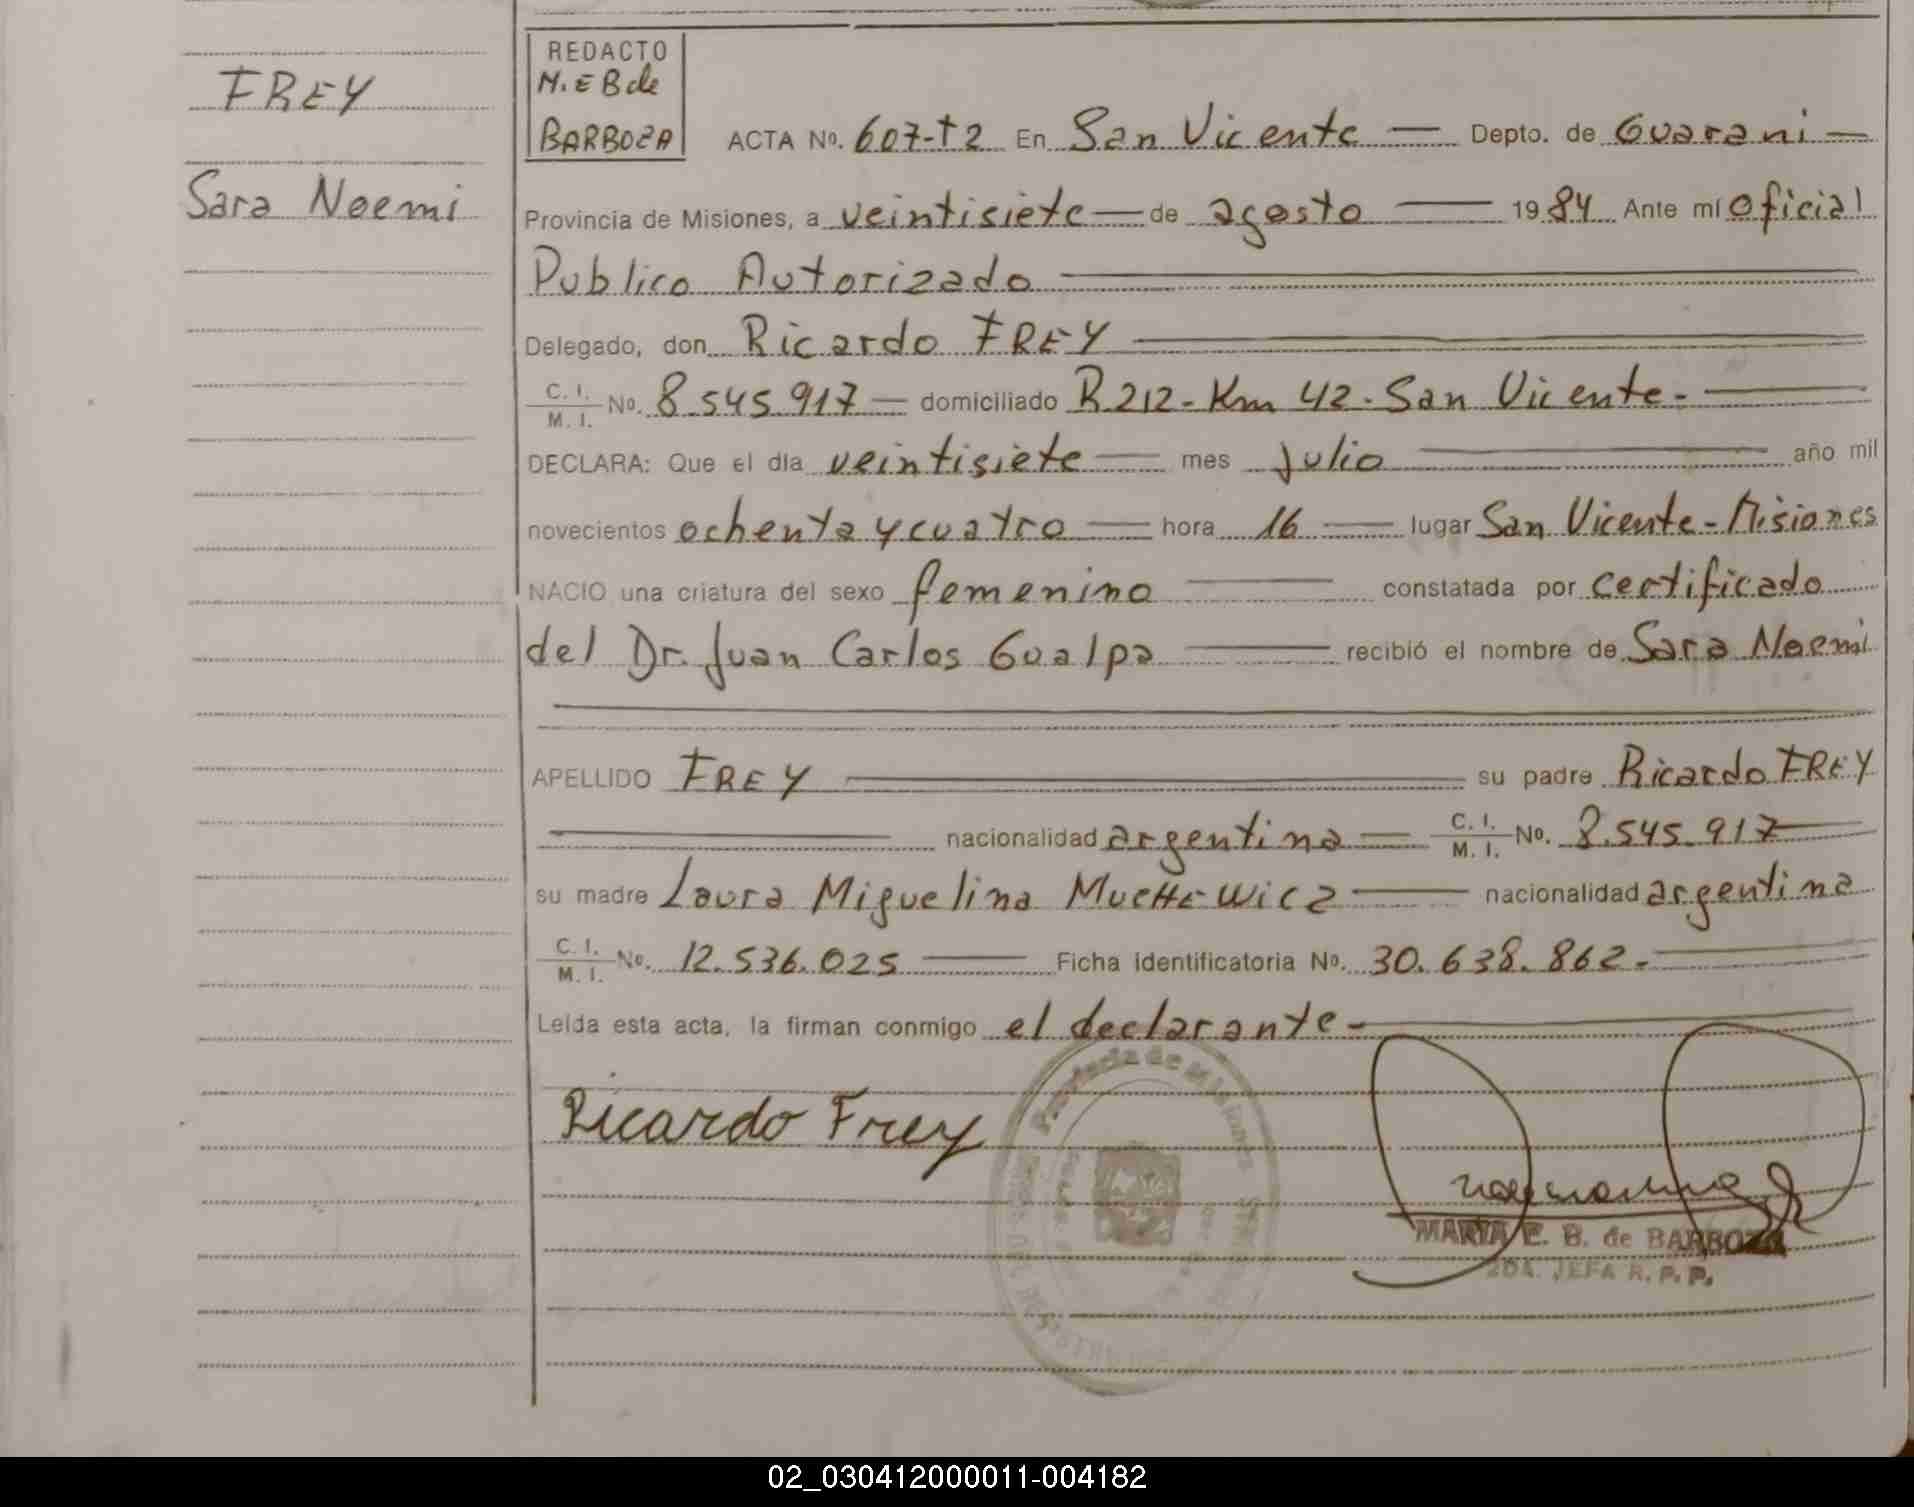 FREY
Sara Noemi
REDACTO
M. E B de
BARBOZA
ACTA No. 607-T2 En San Vicente — Depto. de Guarani —
Provincia de Misiones, a veintisiete — de agosto — 1984 Ante mí Oficial
Publico Autorizado
Delegado, don Ricardo FREY
C. I. / M. I. No. 8.545.917 — domiciliado R 212 - Km 42 - San Vicente -
DECLARA: Que el día veintisiete — mes julio — año mil
novecientos ochenta y cuatro — hora 16 — lugar San Vicente - Misiones
NACIO una criatura del sexo femenino — constatada por certificado
del Dr. Juan Carlos Gualpa — recibió el nombre de Sara Noemi
APELLIDO FREY — su padre Ricardo FREY
— nacionalidad argentina — C. I. / M. I. No. 8.545.917
su madre Laura Miguelina — nacionalidad argentina
C. I. / M. I. No. 12.536.025 — Ficha identificatoria No. 30.638.862.-
Leída esta acta, la firman conmigo el declarante -
Ricardo Frey
Provincia de Misiones
MARIA E. B. de BARBOZA
2DA. JEFA R. P. P.
02_030412000011-004182